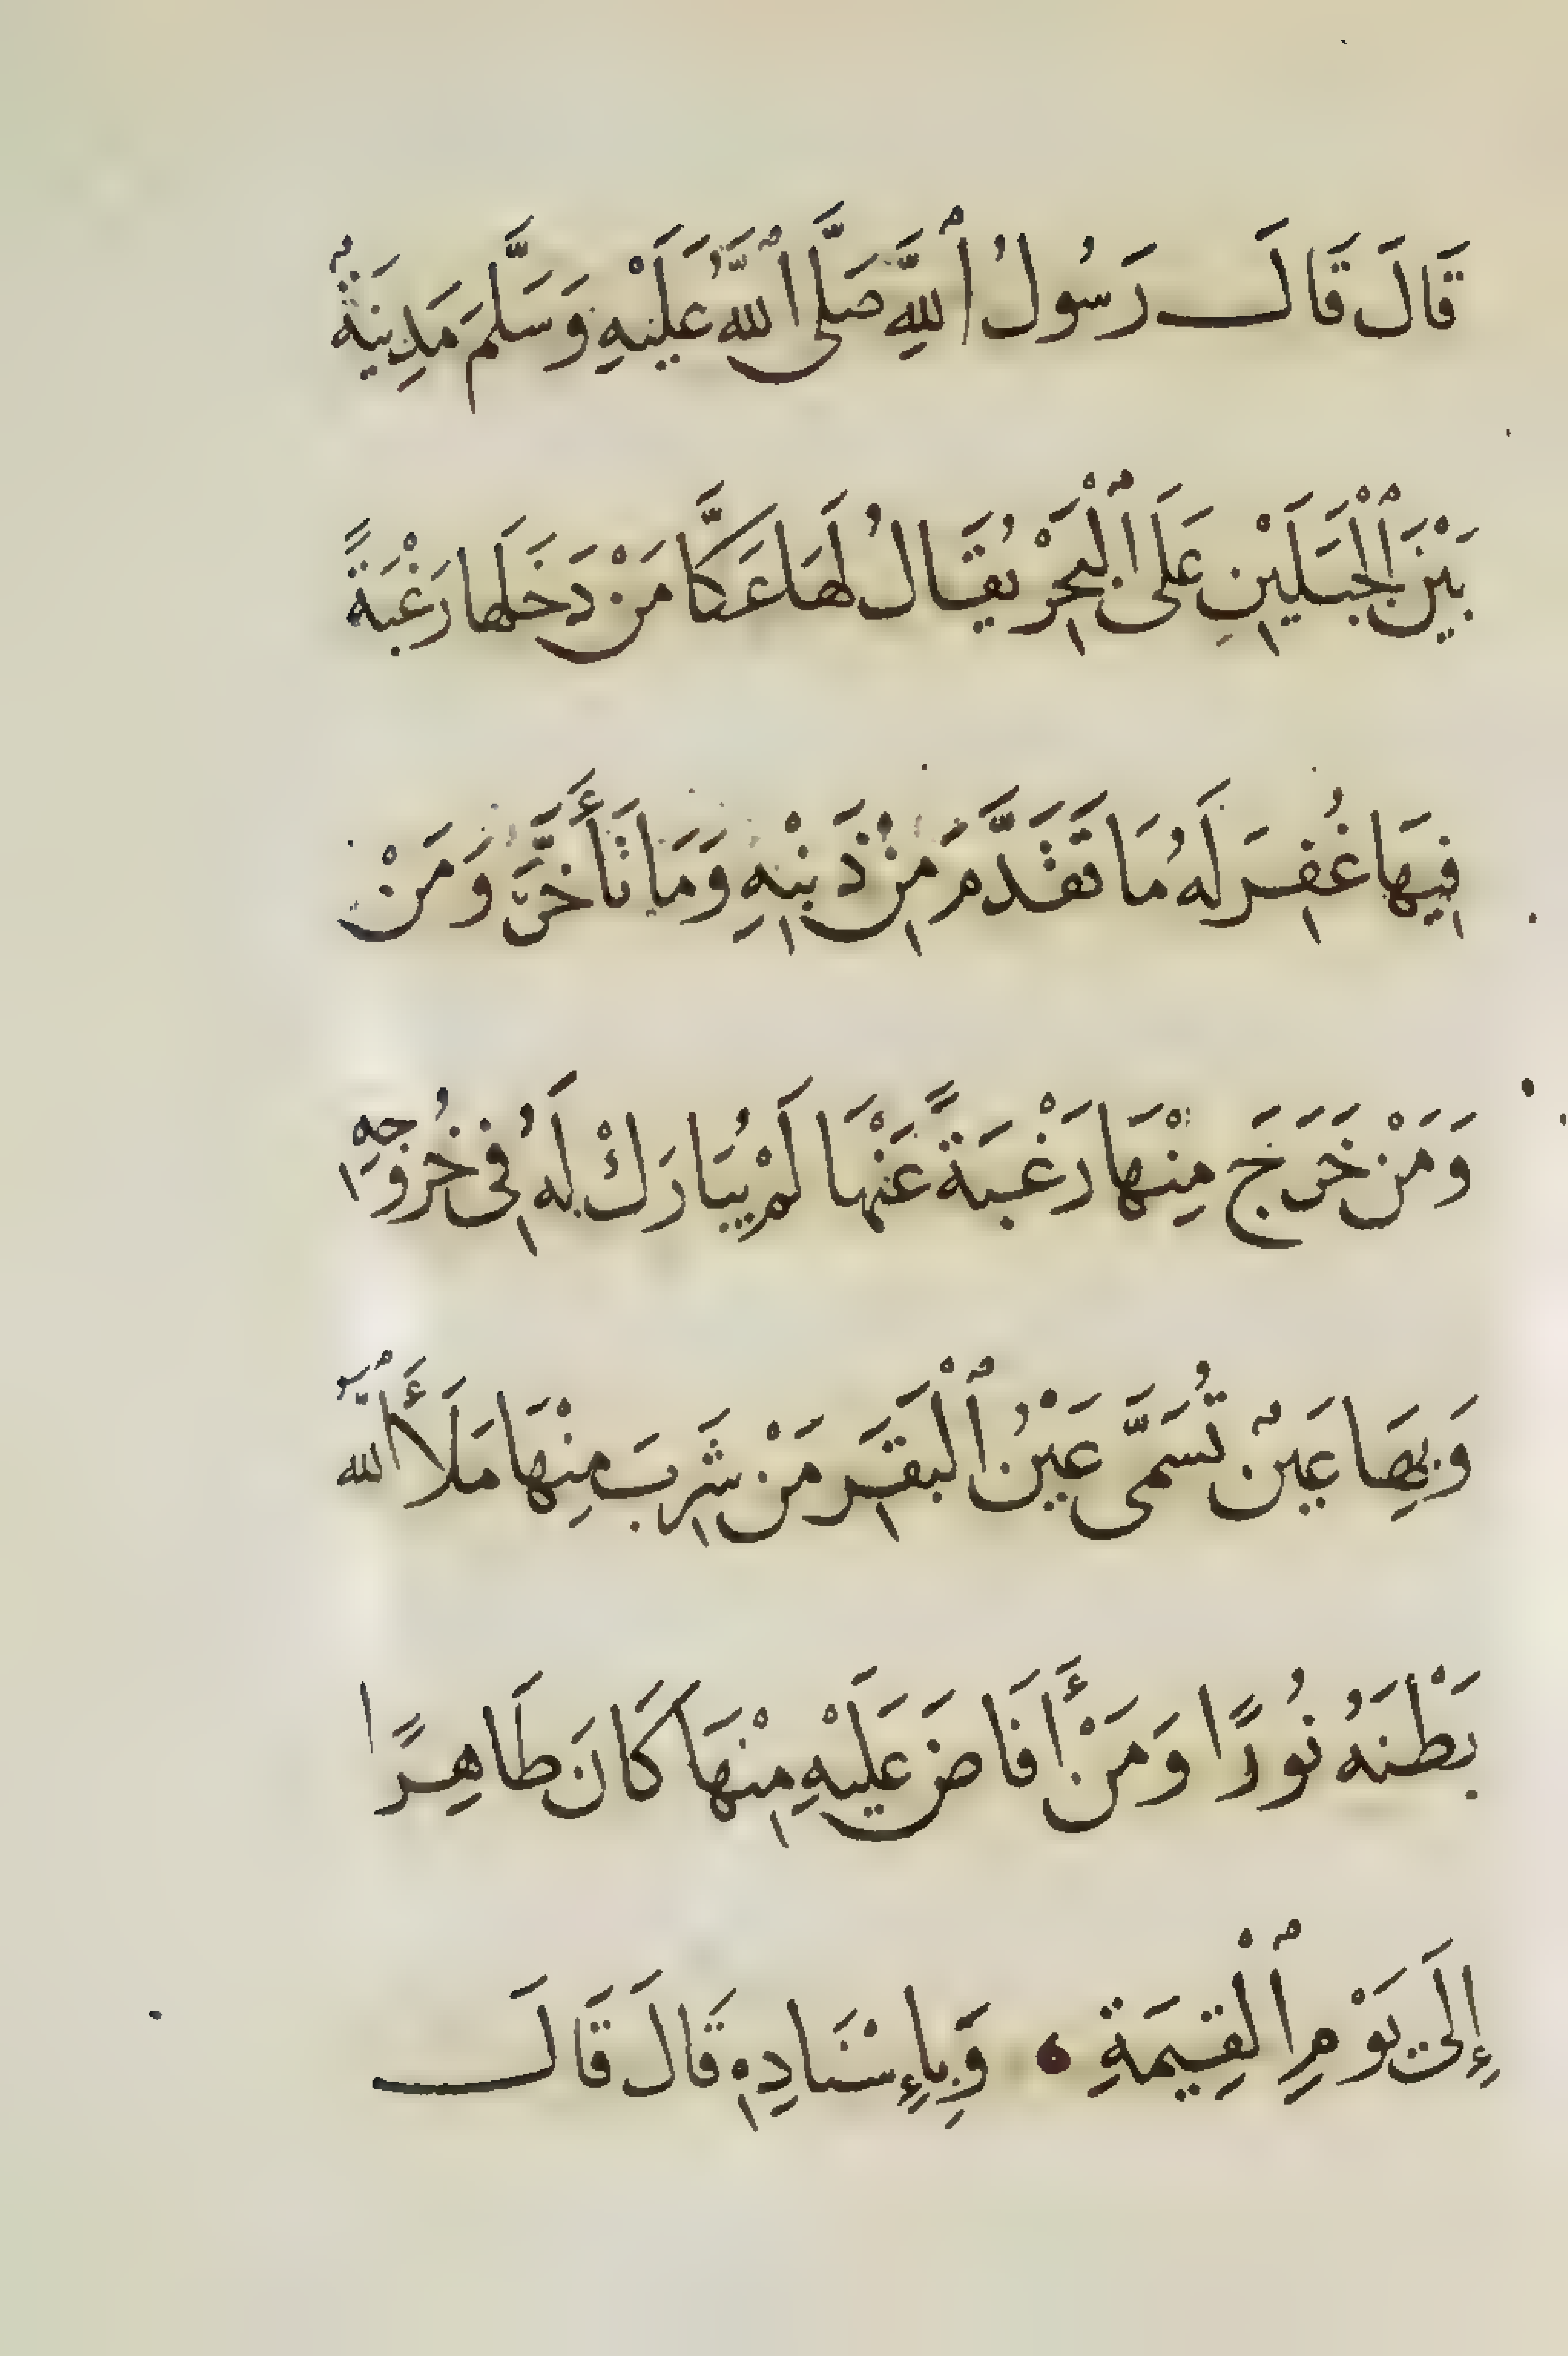 قَالَ قَالَ رَسُولُ ٱللَّهِ صَلَّى ٱللَّهُ عَلَيْهِ وَسَلَّمَ مَدِينَةٌ
بَيْنَ ٱلْجَبَلَيْنِ عَلَى ٱلْبَحْرِ يُقَالُ لَهَا عَكَّا مَنْ دَخَلَها رَغْبَةً
فِيهَا غُفِرَ لَهُ مَا تَقَدَّمَ مِنْ ذَنْبِهِ وَمَا تَأَخَّرَ وَمَنْ
وَمَنْ خَرَجَ مِنْهَا رَغْبَةً عَنْهَا لَمْ يُبَارَكْ لَهُ فِي خُرُوجِهِ
وَبِهَا عَيْنٌ تُسَمَّى عَيْنُ ٱلْبَقَرِ مَنْ شَرِبَ مِنْهَا مَلَأَ ٱللَّهُ
بَطْنَهُ نُورًا وَمَنْ أَفَاضَ عَلَيْهِ مِنْهَا كَانَ طَاهِرًا
إِلَى يَوْمِ ٱلْقِيمَةِ ۰ وَبِإِسْنَادِهِ قَالَ قَالَ